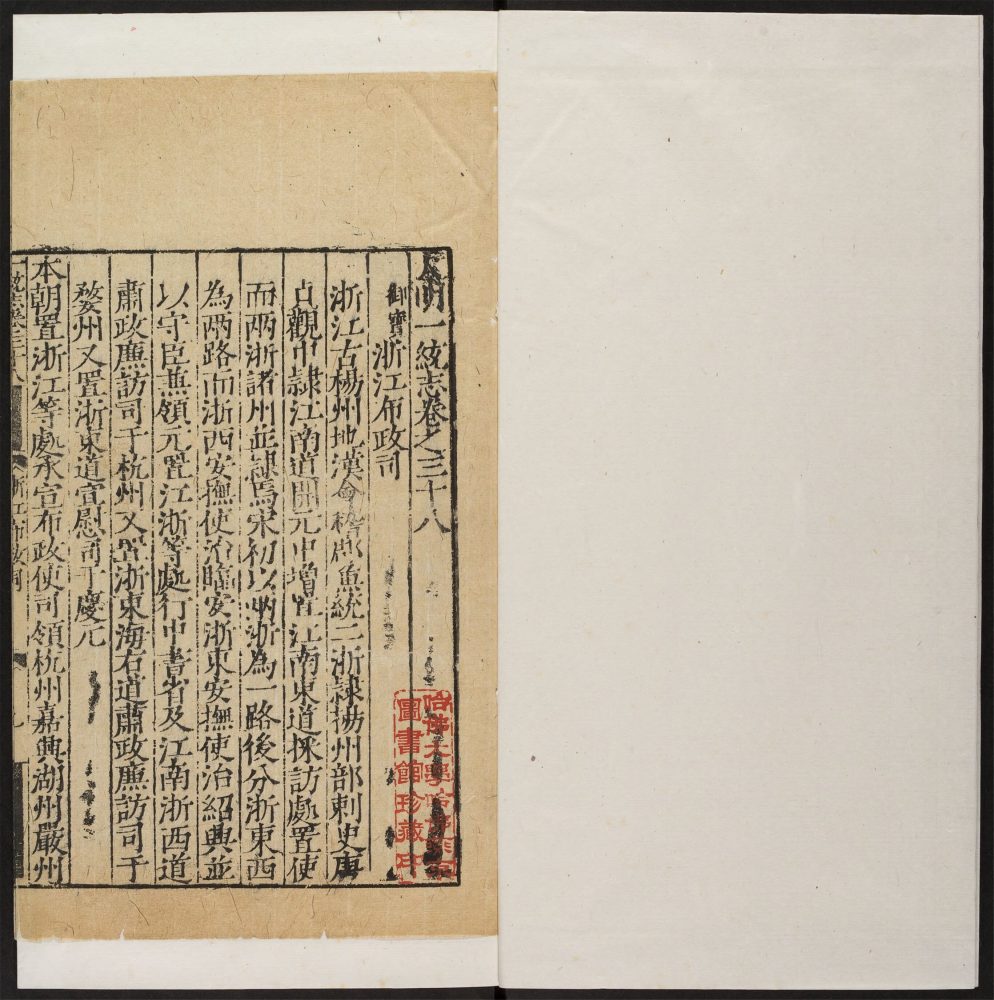 大明一統志卷之三十八
御寶
浙江布政司
浙江古楊州地漢會稽郡虞統二浙隷揚州部刺史唐
貞觀中隷江南道開元中增置江南東道採訪處置使
而兩浙諸州並隷焉宋初以兩浙為一路後分浙東西
為兩路而浙西安撫使治臨安浙東安撫使治紹興並
以守臣兼領元置江浙等處行中書省及江南浙西道
肅政廉訪司于杭州又置浙東海右道肅政廉訪司于
婺州又置浙東道宣慰司于慶元
本朝置浙江等處承宣布政使司領杭州嘉興湖州嚴州
一統志卷三十八
浙江布政司
哈佛大學哈佛燕京
圖書館珍藏印